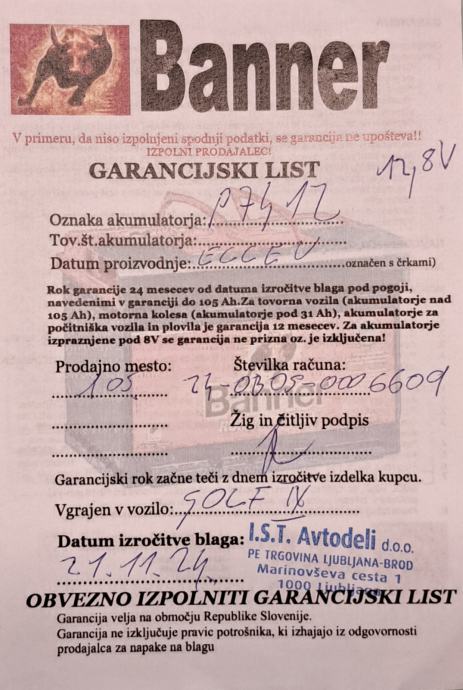 Banner
V primeru, da niso izpolnjeni spodnji podatki, se garancija ne upošteva!!
IZPOLNI PRODAJALEC!
GARANCIJSKI LIST
12,8V
Oznaka akumulatorja: P7412
Tov.št.akumulatorja:
Datum proizvodnje: označen s črkami)
Rok garancije 24 mesecev od datuma izročitve blaga pod pogoji,
navedenimi v garanciji do 105 Ah.Za tovorna vozila (akumulatorje nad
105 Ah), motorna kolesa (akumulatorje pod 31 Ah), akumulatorje za
počitniška vozila in plovila je garancija 12 mesecev. Za akumulatorje
izpraznjene pod 8V se garancija ne prizna oz. je izključena!
Prodajno mesto: Številka računa:
105 24-0305-0006609
Banner
Žig in čitljiv podpis
Garancijski rok začne teči z dnem izročitve izdelka kupcu.
Vgrajen v vozilo: GOLF IV
Datum izročitve blaga: I.S.T. Avtodeli d.o.o.
PE TRGOVINA LJUBLJANA-BROD
21.11.24. Marinovševa cesta 1
1000 Ljubljana
OBVEZNO IZPOLNITI GARANCIJSKI LIST
Garancija velja na območju Republike Slovenije.
Garancija ne izključuje pravic potrošnika, ki izhajajo iz odgovornosti
prodajalca za napake na blagu